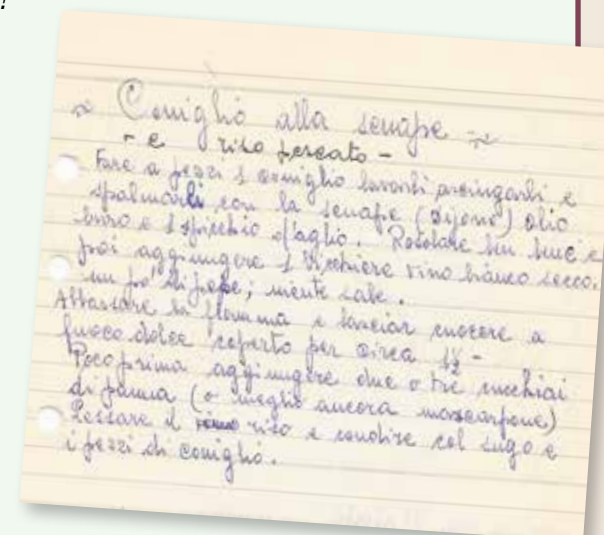 ~ Coniglio alla senape ~
- e riso
Fare a pezzi 1 coniglio lavarli asciugarli e
spalmarli con la senape (Dijone) olio
burro e 1 spicchio d'aglio. Rosolare ben bene
poi aggiungere 1 bicchiere vino bianco secco.
un po' di pepe; niente sale.
Abbassare la fiamma e lasciar cuocere a
fuoco dolce coperto per circa
Poco prima aggiungere due o tre cucchiai
di panna (o meglio ancora mascarpone)
Lessare il riso e condire col sugo e
i pezzi di coniglio.